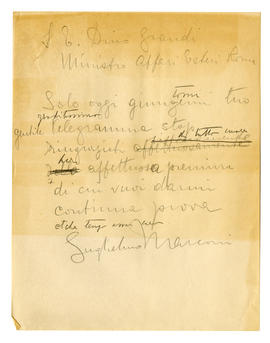 S. E. Dino Grandi
Ministro Affari Esteri Roma
Solo oggi giungemi tuo
gentilissimo
gentile telegramma stop
ringrazioti affettuosamente
per
affettuosa premura
di cui vuoi darmi
continua prova
Guglielmo Marconi